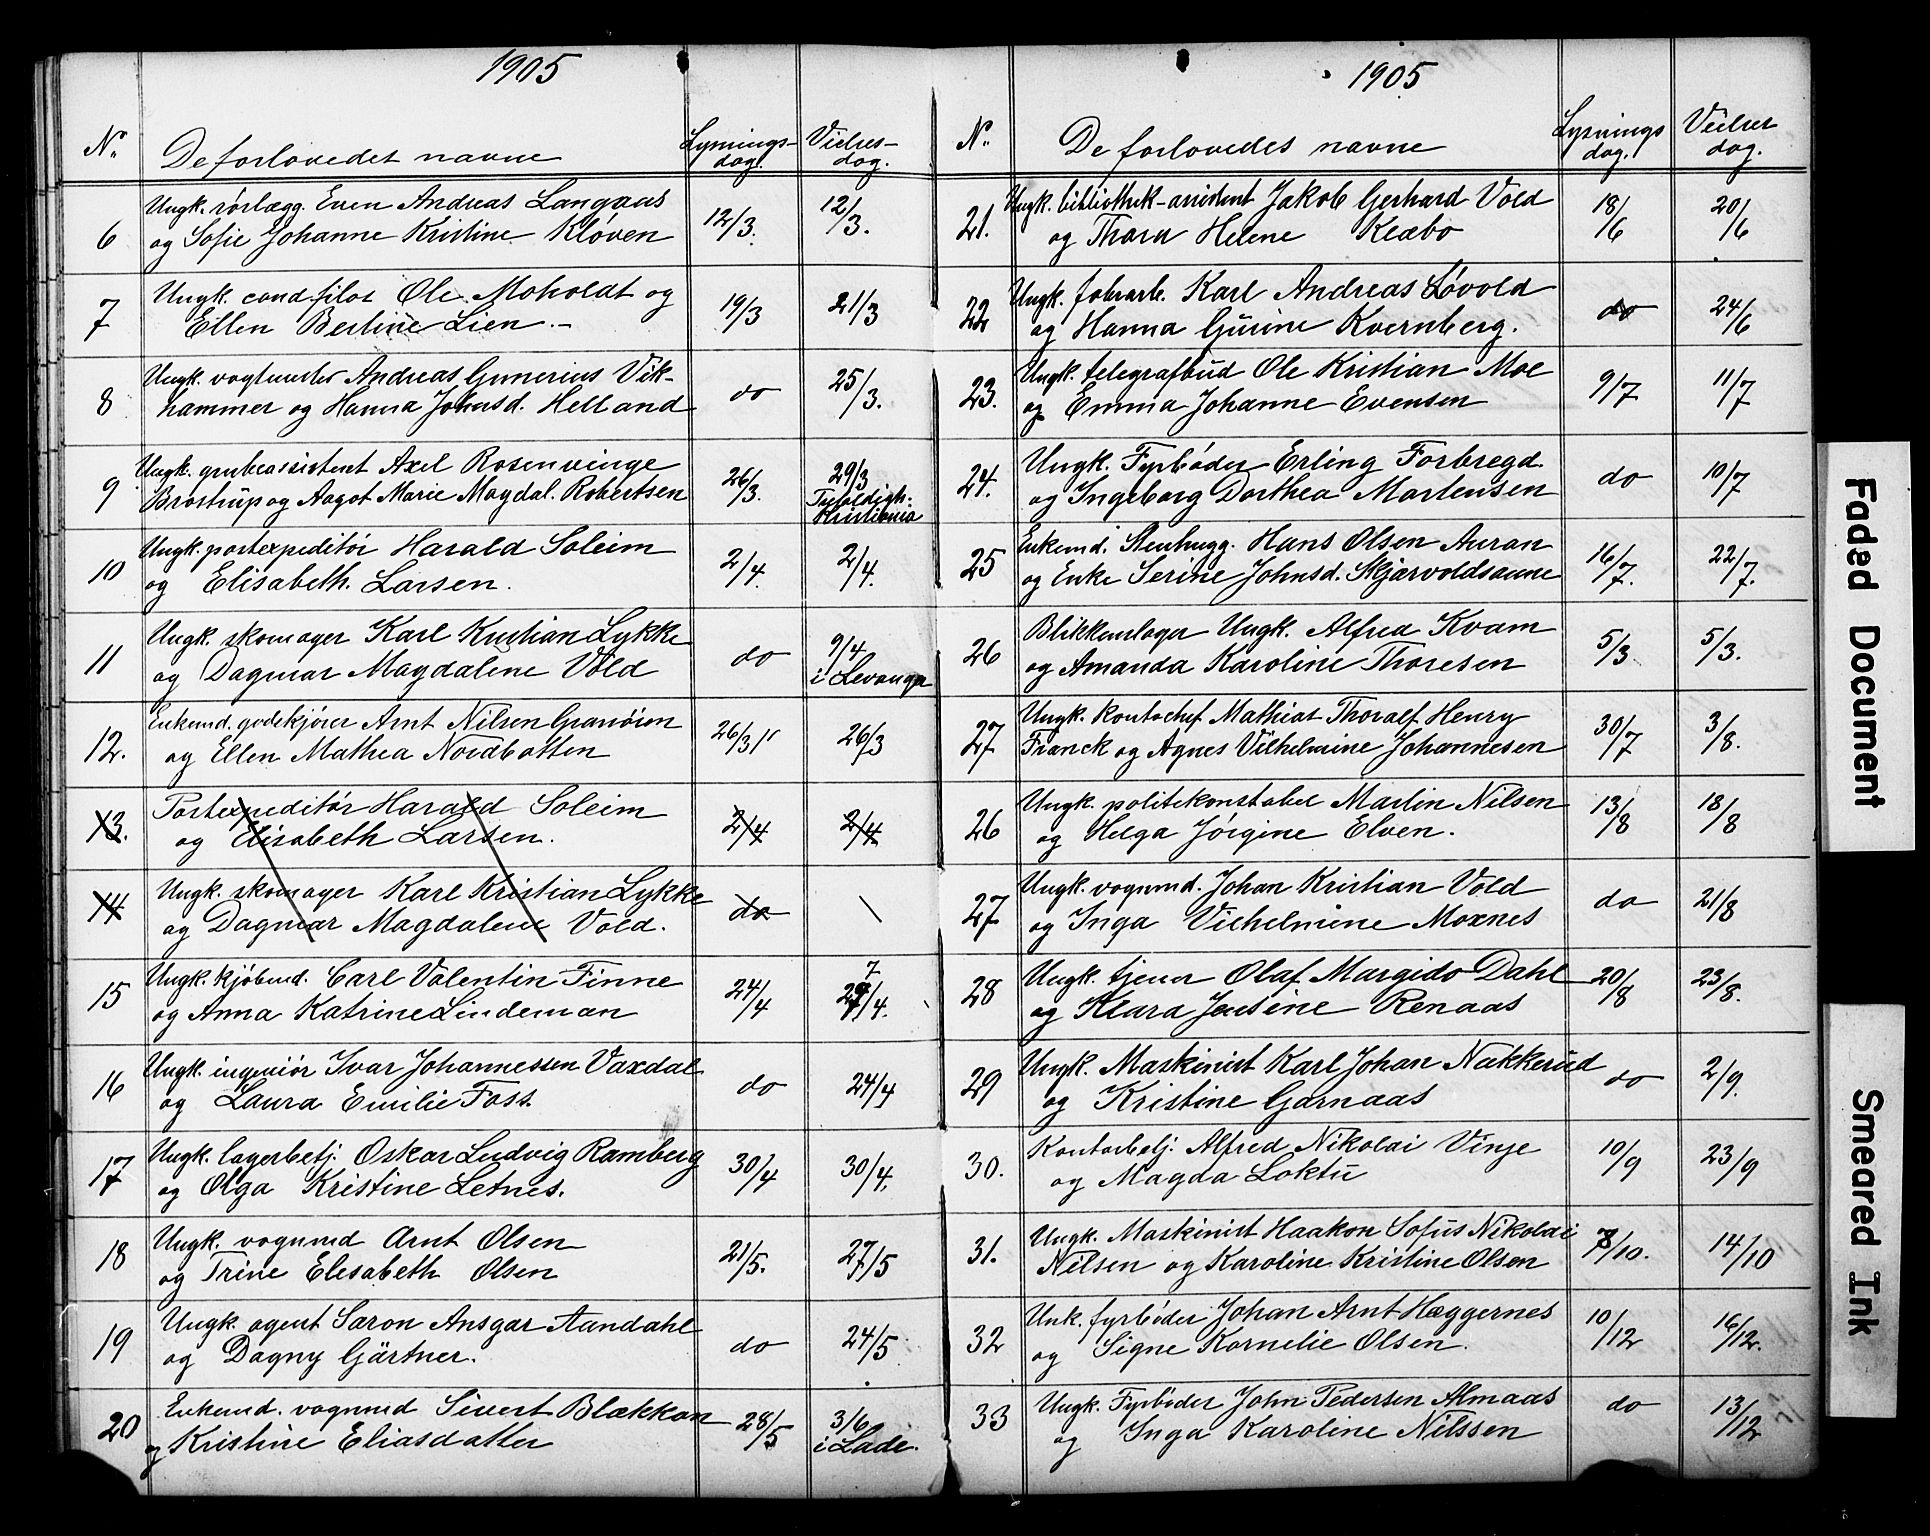 1905
N.
De forlovedes navne
Lysnings-
dag.
Vielses-
dag.
6
Ungk. rørlægg. Even Andreas Langaas
og Sofie Johanne Kristine Kløven
12/3.
12/3.
7
Ungk. cand. filos Ole Moholdt og
Ellen Bertine Lien.-
19/3
21/3
8
Ungk. vogtmester Andreas Gunerius Vik-
hammer og Hanna Johnsd. Helland
do
25/3.
9
Ungk. grubeassistent Axel Rosenvinge
Brostrup og Aagot Marie Magdal. Robertsen
26/3.
29/3
Trefoldigh.
Kristiania
10
Ungk. postexpeditør Harald Soleim
og Elisabeth Larsen.
2/4.
2/4.
11
Ungk. skomager Karl Kristian Lykke
og Dagmar Magdalene Vold
do
9/4
i Levanger
12.
Enkemd. godskjører Arnt Nilsen Granöien
og Ellen Mathea Nordbotten
26/3
26/3
13.
Postexpeditör Harald Soleim
og Elisabeth Larsen.
2/4
2/4
14
Ungk. skomager Karl Kristian Lykke
og Dagmar Magdalene Vold.
do
15
Ungk. kjøbmd. Carl Valentin Finne
og Anna Katrine Lindeman
24/4
27/4.
16
Ungk. ingeniör Ivar Johannessen Vaxdal
og Laura Emilie Foss.
do
24/4
17
Ungk. lagerbetj. Oskar Ludvig Ramberg
og Olga Kristine Letnes.
30/4
30/4.
18
Ungk. vognmd Arnt Olsen
og Trine Elesabeth Olsen
21/5.
27/5
19
Ungk. agent Saron Ansgar Aandahl
og Dagny Gärtner.
do
24/5
20
Enkemd. vognmd Sivert Blækkan
og Kristine Eliasdatter
28/5
3/6
i Lade.
1905
N.
De forlovedes navne
Lysnings
dag.
Vielses
dag.
21.
Ungk. bibliothek-assistent Jakob Gerhard Vold
og Thora Helene Klæbo
18/6
20/6
22
Ungk. fabrarb. Karl Andreas Løvold
og Hanna Gurine Kvernberg.
do
24/6
23.
Ungk. telegrafbud Ole Kristian Moe
og Emma Johanne Evensen
9/7
11/7
24.
Ungk. Fyrbøder Erling Forbregd.
og Ingeborg Dorthea Martensen
do
10/7
25
Enkemd. Stenhugg. Hans Olsen Auran
og Enke Serine Johnsd. Skjærvoldsaune
16/7.
22/7.
26
Blikkenslager Ungk. Alfred Kvam
og Amanda Karoline Thoresen
5/3
5/3.
27
Ungk. kontochef Mathias Thoralf Henry
Franck og Agnes Vilhelmine Johannesen
30/7
3/8.
26
Ungk. politikonstabel Martin Nilsen
og Helga Jörgine Elven.
13/8
18/8
27
Ungk. vognmd. Johan Kristian Vold
og Inga Vilhelmine Moxnes
do
21/8
28
Ungk. tjener Olaf Margido Dahl
og Klara Jensine Renaas
20/8
23/8.
29
Ungk. Maskinist Karl Johan Nakkerud
og Kristine Garnaas
do
2/9.
30.
Kontorbetj. Alfred Nikolai Vinje
og Magda Loktu
10/9
23/9
31.
Ungk. Maskinist Haakon Sofus Nikolai
Nilsen og Karoline Kristine Olsen
8/10.
14/10
32
Unk. fyrbøder Johan Arnt Hæggernes
og Signe Kornelie Olsen.
10/12
16/12.
33
Ungk. Fyrbøder John Pedersen Almaas
og Inga Karoline Nilssen
do
13/12
Faded Document
Smeared Ink